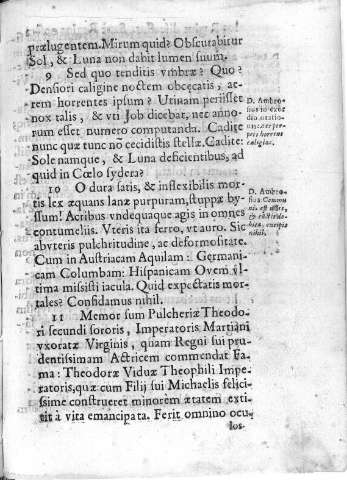 prælugentem. Mirum quid? Obscurabitur
Sol, & Luna non dabit lumen suum.
9 Sed quo tenditis vmbræ? Quo?
Densiori caligine noctem obcęcatis, ae-
rem horrentes ipsum? Utinam periisset
nox talis, & vti Job dicebat, nec anno-
rum esset numero computanda. Cadite
nunc quæ tunc nō cecidistis stellæ. Cadite:
Sole namque, & Luna deficientibus, ad
quid in Cœlo sydera?
10 O dura satis, & inflexibilis mor-
tis lex æquans lanæ purpuram, stuppæ bys-
sum! Actibus vndequaque agis in omnes
contumeliis. Vteris ita ferro, vt auro. Sic
abvteris pulchritudine, ac deformositate.
Cum in Austriacam Aquilam: Germani-
cam Columbam: Hispanicam Ovem vl-
tima misisti iacula. Quid expectatis mor-
tales? Confidamus nihil.
11 Memor sum Pulcheriæ Theodo-
ri secundi sororis, Imperatoris Martiani
vxoratæ Virginis, quam Regni sui pru-
dentissimam Actricem commendat Fa-
ma: Theodoræ Viduæ Theophili Impe-
ratoris, quæ cum Filij sui Michaelis felici-
ssime construeret minorem ætatem exti-
tit à vita emancipata. Ferit omnino ocu-
los
D. Ambro-
sius in
horrens
caligine.
D. Ambro-
nihil.